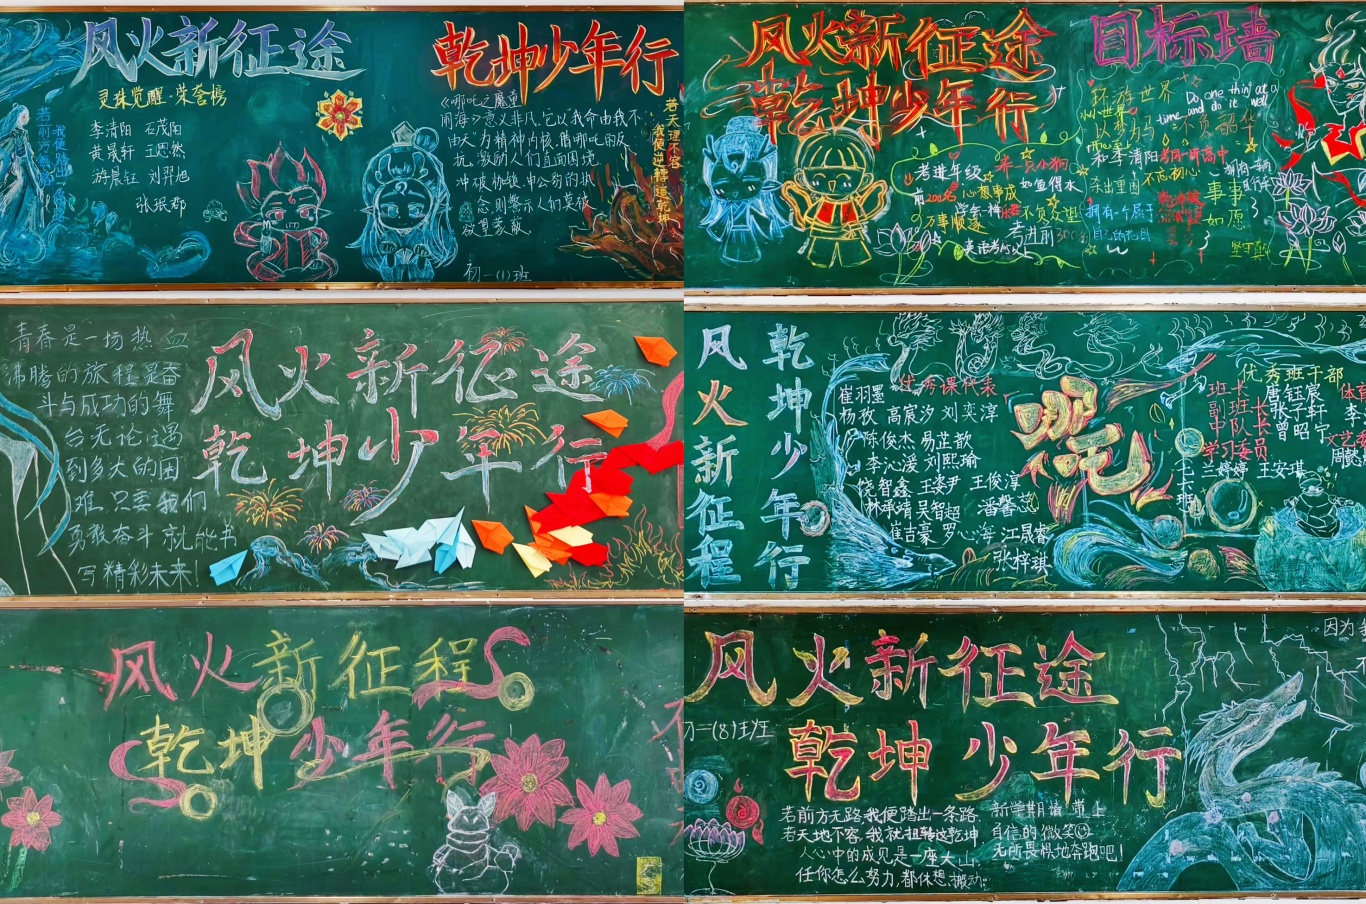 风火新征途
乾坤少年行
灵珠觉醒·荣誉榜
李清阳 石茂阳
黄晟轩 王思然
游晨钰 刘羿旭
张珉郡
若前方无路
我便踏出一条路
《哪吒之魔童
闹海》意义非凡,它以我命由我不
由天为精神内核,借哪吒的反
抗,激励人们直面困境
冲破枷锁,申公豹的执
念则警示人们突破
初一(1)班
若天理不容
我便逆转这乾坤
风火新征途
乾坤少年行
目标墙
考进年级
前200名
心想事成
万事顺遂
养一只小狗
如鱼得水
不负众望
考进前300名
环游世界
Do one thing at a
time and do it well
以梦为马 不负韶华
和李清阳考同一所高中
不忘初心
拥有一个属于
自己的花园
事事
如愿
青春是一场热血
沸腾的旅程是奋
斗与成功的舞
台无论遇
到多大的困
难,只要我们
勇敢奋斗就能书
写精彩未来!
风火新征途
乾坤少年行
风火新征程
乾坤少年行
优秀课代表
崔羽墨
杨孜 高宸汐 刘奕淳
陈俊杰 易芷歆
李沁湲 刘熙瑜
饶智鑫 王姿尹 王俊淳
林承靖 吴智超 潘馨蕊
崔吉豪 罗心海 江晟睿
张梓琪
哪吒
七六班
优秀班干部
班长 唐钰宸
副班长 张子轩
中队长 曾昭宁
学习委员
兰婷婷 王安琪
体育
李
文艺委
周懿
风火新征程
乾坤少年行
风火新征途
初一(8)班
乾坤少年行
若前方无路,我便踏出一条路,
若天地不容,我就扭转这乾坤
人心中的成见是一座大山,
任你怎么努力,都休想搬动。
新学期请带上
自信的微笑
无所畏惧地奔跑吧!
因为我